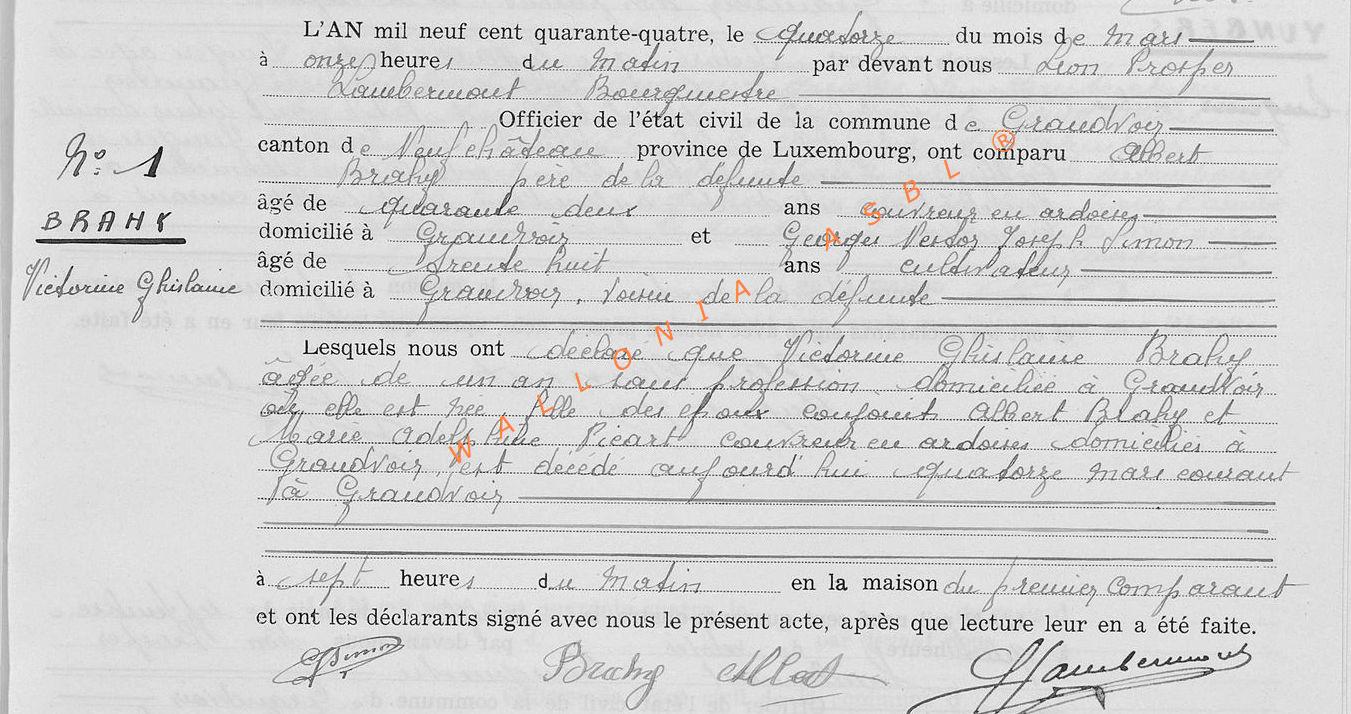 L'AN mil neuf cent quarante-quatre, le quatorze du mois de mars
à onze heures du matin par devant nous Léon Prosper
Lambermont Bourgmestre
Officier de l'état civil de la commune de Grandvoir
canton de Neufchâteau province de Luxembourg, ont comparu Albert
N° 1
Brahy père de la défunte
âgé de quarante deux ans couvreur en ardoises
BRAHY
domicilié à Grandvoir et Georges Nestor Joseph Simon
âgé de trente huit ans cultivateur
Victorine Ghislaine
domicilié à Grandvoir, voisin de la défunte
Lesquels nous ont déclaré que Victorine Ghislaine Brahy
âgée de un an sans profession domiciliée à Grandvoir
où elle est née, fille des époux conjoints Albert Brahy et
Marie Adelphine Picart couvreur en ardoises domiciliés à
Grandvoir, est décédé aujourd'hui quatorze mars courant
à Grandvoir
à sept heures du matin en la maison du premier comparant
et ont les déclarants signé avec nous le présent acte, après que lecture leur en a été faite.
GSimon Brahy Albert Lambermont
WALLONIA ASBL ®